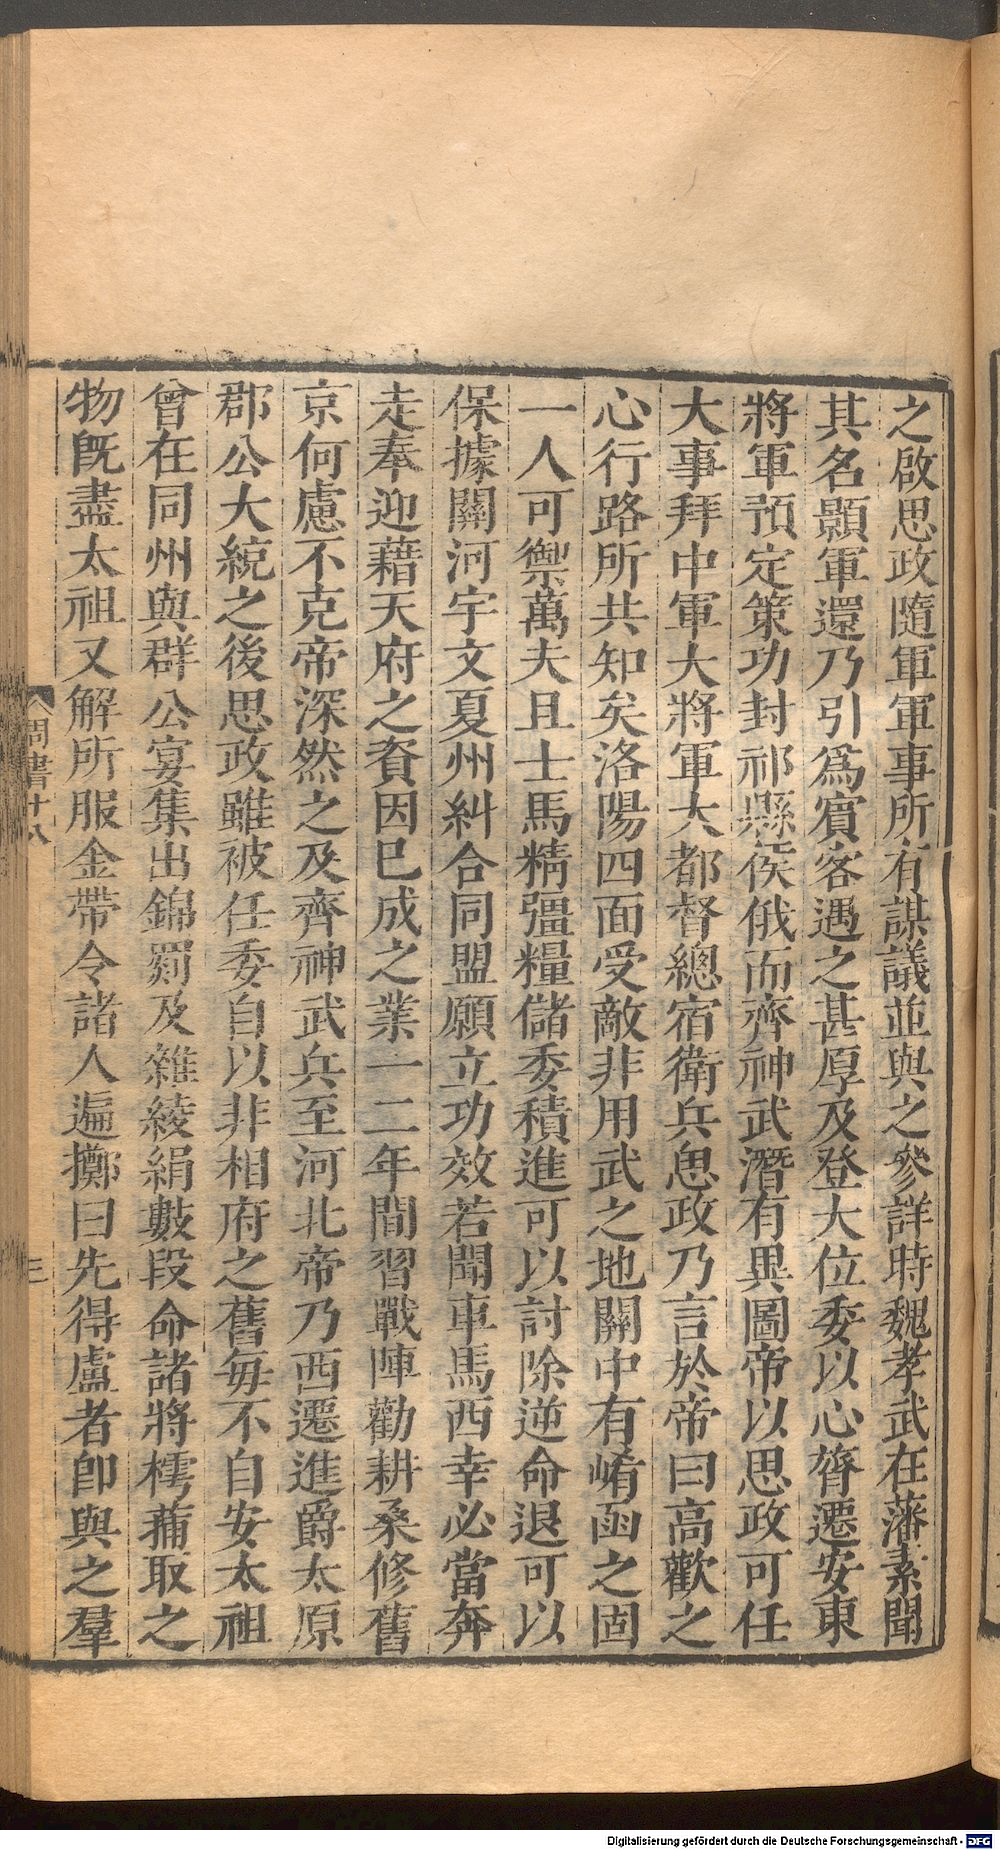 之啟思政隨軍軍事所有謀議並與之參詳時魏孝武在藩素聞
其名顥軍還乃引爲賓客遇之甚厚及登大位委以心膂遷安東
將軍預定策功封祁縣侯俄而齊神武潛有異圖帝以思政可任
大事拜中軍大將軍大都督總宿衛兵思政乃言於帝曰高歡之
心行路所共知矣洛陽四面受敵非用武之地關中有崤函之固
一人可禦萬夫且士馬精彊糧儲委積進可以討除逆命退可以
保據關河宇文夏州糾合同盟願立功效若聞車馬西幸必當奔
走奉迎藉天府之資因已成之業一二年間習戰陣勸耕桑修舊
京何慮不克帝深然之及齊神武兵至河北帝乃西遷進爵太原
郡公大統之後思政雖被任委自以非相府之舊每不自安太祖
曾在同州與群公宴集出錦罽及雜綾絹數段命諸將樗蒱取之
物旣盡太祖又解所服金帶令諸人遍擲曰先得盧者卽與之羣
周書十八
三
Digitalisierung gefördert durch die Deutsche Forschungsgemeinschaft - DFG